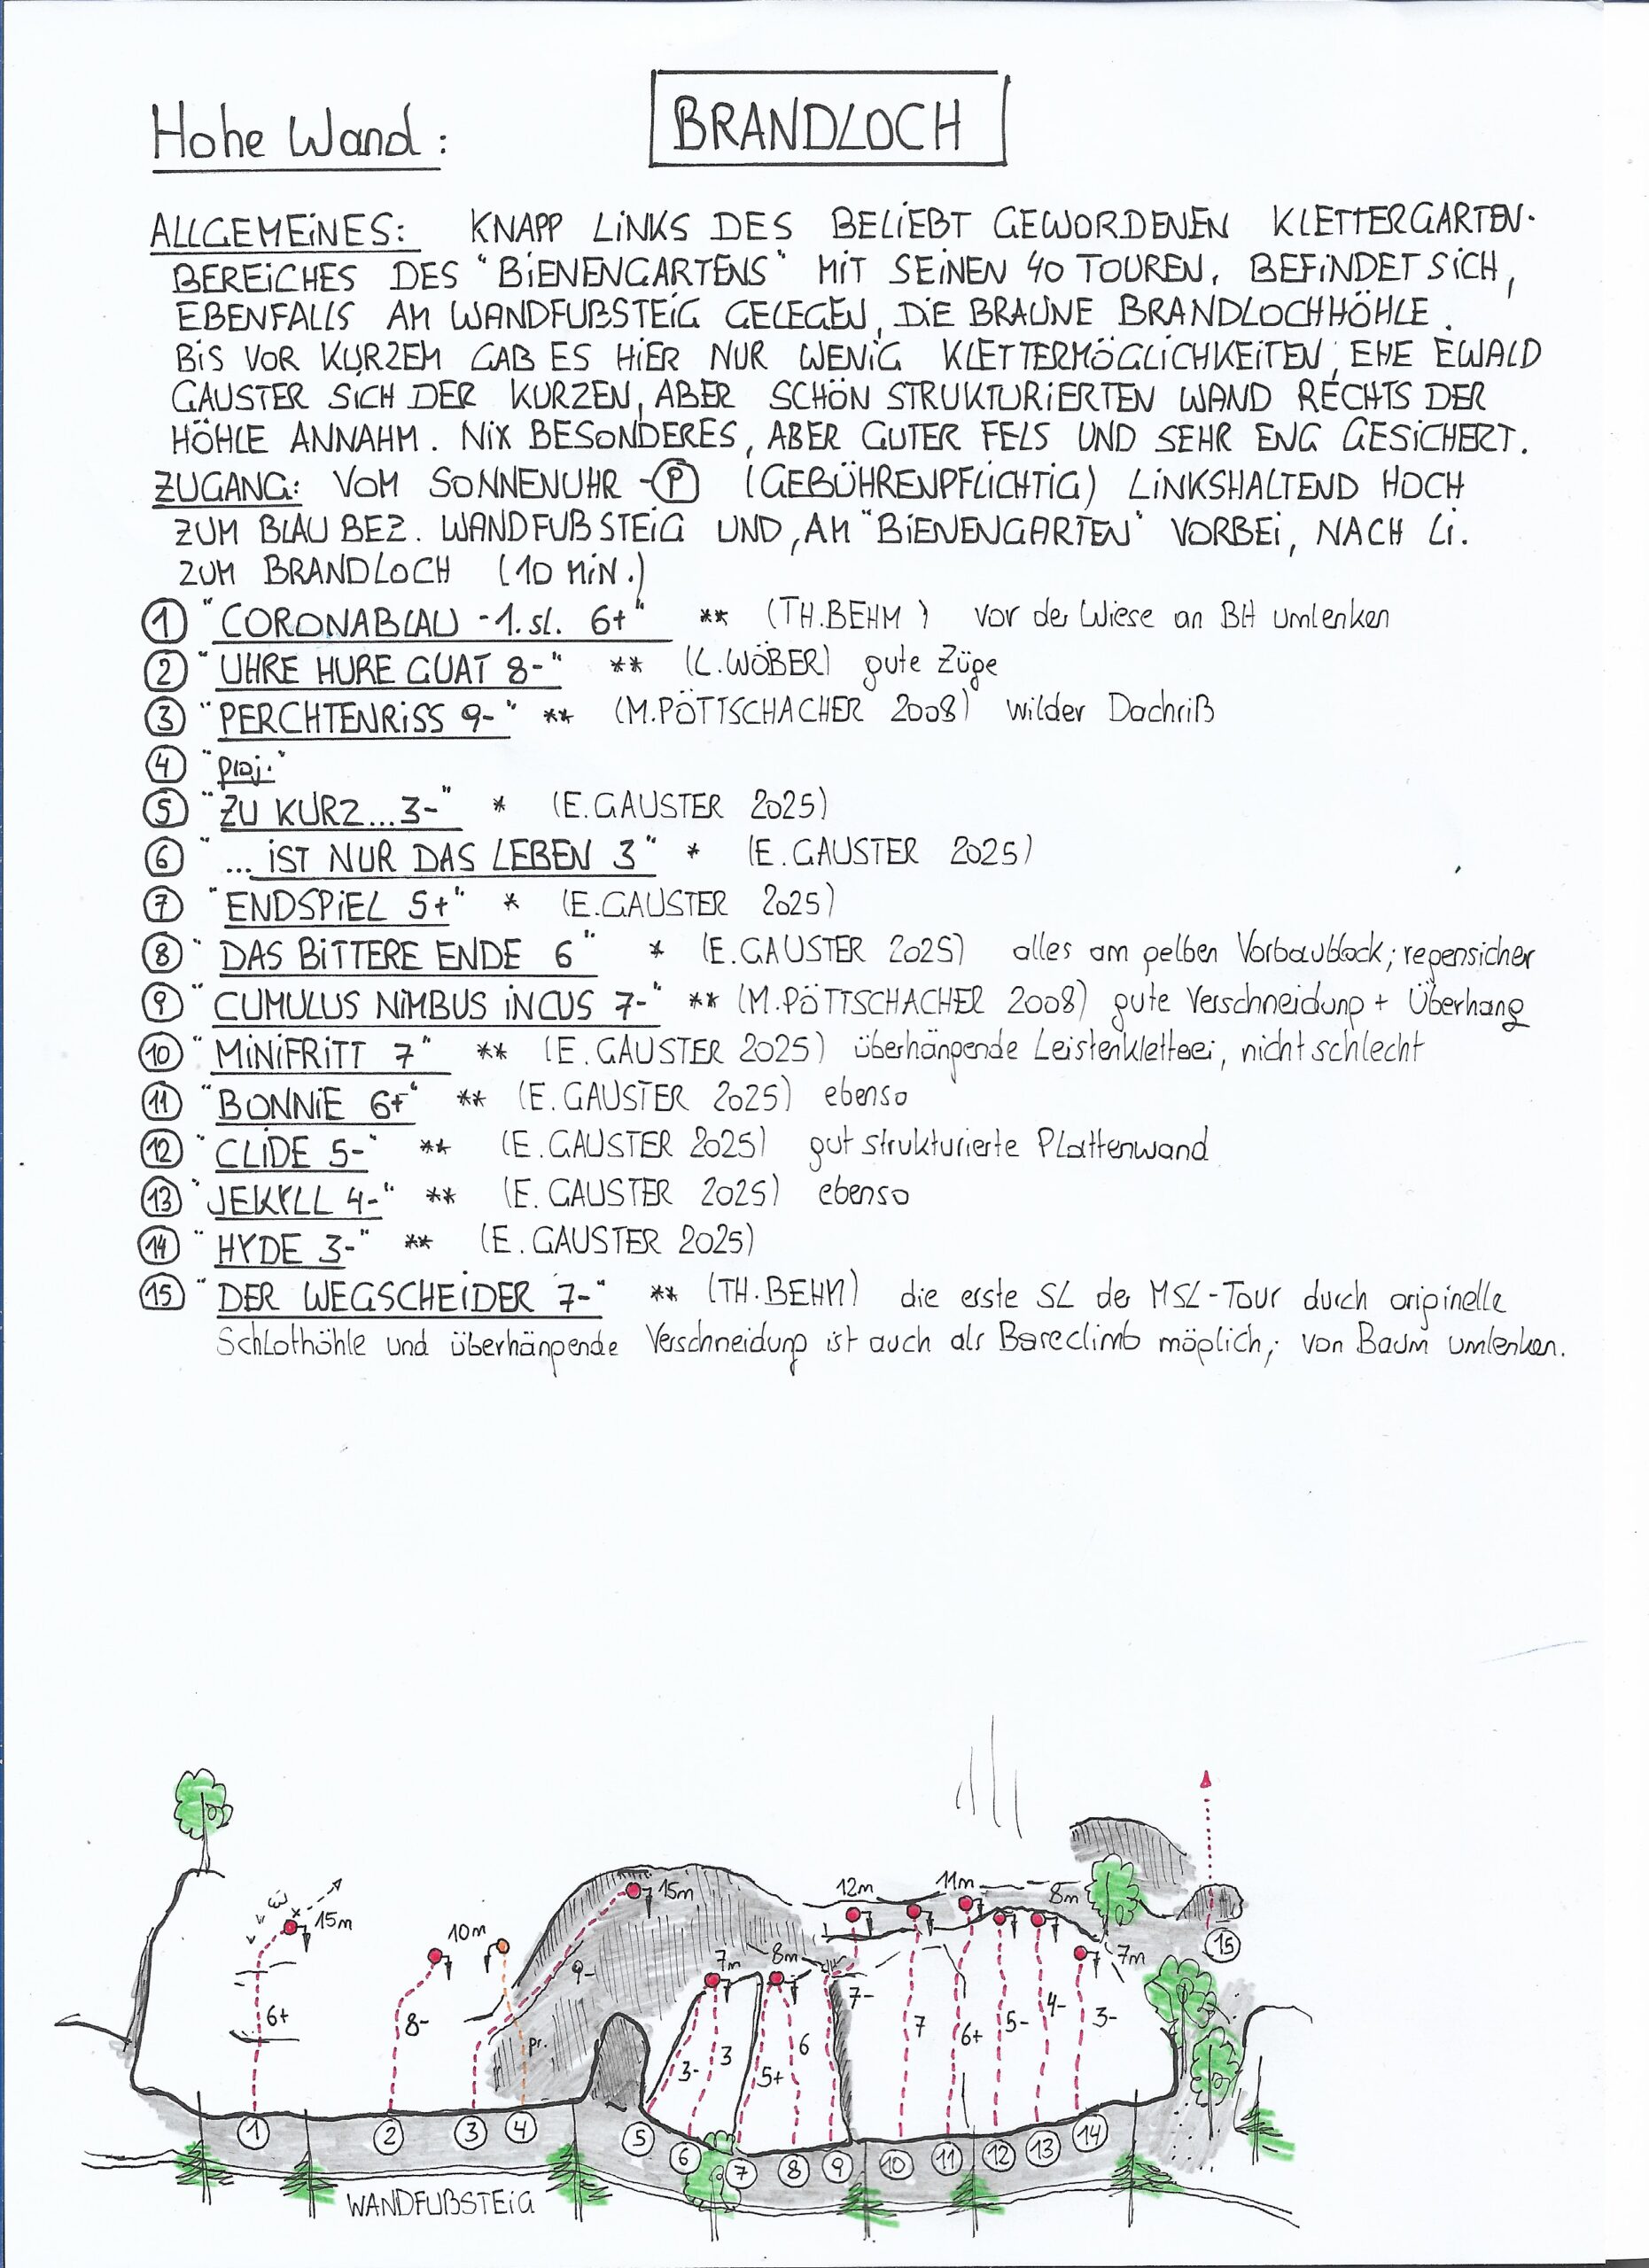 Hohe Wand:
BRANDLOCH
ALLGEMEINES: KNAPP LINKS DES BELIEBT GEWORDENEN KLETTERGARTEN-
BEREICHES DES "BIENENGARTENS" MIT SEINEN 40 TOUREN, BEFINDET SICH,
EBENFALLS AM WANDFUßSTEIG GELEGEN, DIE BRAUNE BRANDLOCHHÖHLE.
BIS VOR KURZEM GAB ES HIER NUR WENIG KLETTERMÖGLICHKEITEN, EHE EWALD
GAUSTER SICH DER KURZEN, ABER SCHÖN STRUKTURIERTEN WAND RECHTS DER
HÖHLE ANNAHM. NIX BESONDERES, ABER GUTER FELS UND SEHR ENG GESICHERT.
ZUGANG: VOM SONNENUHR-P (GEBÜHRENPFLICHTIG) LINKSHALTEND HOCH
ZUM BLAU BEZ. WANDFUßSTEIG UND, AM "BIENENGARTEN" VORBEI, NACH LI.
ZUM BRANDLOCH (10 MIN.)
1 "CORONABLAU -1.sl. 6+" ** (TH.BEHM) vor der Wiese an BH umlenken
2 "UHRE HURE GUAT 8-" ** (L.WÖBER) gute Züge
3 "PERCHTENRISS 9-" ** (M.PÖTTSCHACHER 2008) wilder Dachriß
4 "proj."
5 "ZU KURZ...3-" * (E.GAUSTER 2025)
6 "...IST NUR DAS LEBEN 3" * (E.GAUSTER 2025)
7 "ENDSPIEL 5+" * (E.GAUSTER 2025)
8 "DAS BITTERE ENDE 6" * (E.GAUSTER 2025) alles am gelben Vorbaublock; regensicher
9 "CUMULUS NIMBUS INCUS 7-" ** (M.PÖTTSCHACHER 2008) gute Verschneidung + Überhang
10 "MINIFRITT 7" ** (E.GAUSTER 2025) überhängende Leistenkletterei, nicht schlecht
11 "BONNIE 6+" ** (E.GAUSTER 2025) ebenso
12 "CLIDE 5-" ** (E.GAUSTER 2025) gut strukturierte Plattenwand
13 "JEKYLL 4-" ** (E.GAUSTER 2025) ebenso
14 "HYDE 3-" ** (E.GAUSTER 2025)
15 "DER WEGSCHEIDER 7-" ** (TH.BEHM) die erste SL der MSL-Tour durch originelle
Schlothöhle und überhängende Verschneidung ist auch als Baseclimb möglich; von Baum umlenken.
15m
10m
15m
7m
8m
12m
11m
8m
7m
6+
8-
9-
pr.
3-
3
5+
6
7-
7
6+
5-
4-
3-
1
2
3
4
5
6
7
8
9
10
11
12
13
14
15
WANDFUßSTEIG